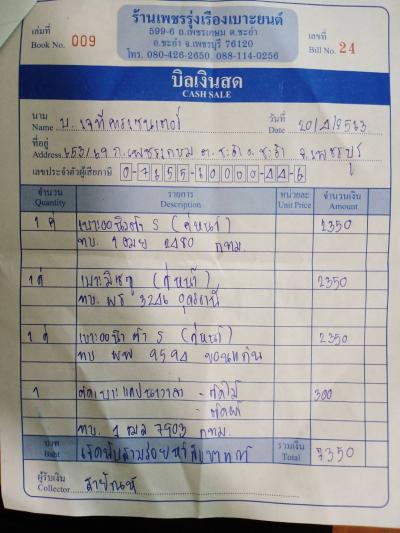 ร้านเพชรรุ่งเรืองเบาะยนต์
599-6 ถ.เพชรเกษม ต.ชะอำ
อ.ชะอำ จ.เพชรบุรี 76120
โทร. 080-426-2650 088-114-0256
เล่มที่
Book No. 009
เลขที่
Bill No. 24
บิลเงินสด
CASH SALE
นาม
Name บ. เจที คาร์เซนเตอร์
วันที่
Date 20/4/2563
ที่อยู่
Address 653/69 ถ.เพชรเกษม ต.ชะอำ อ.ชะอำ จ.เพชรบุรี
เลขประจำตัวผู้เสียภาษี 0-7655-10000-44-6
จำนวน รายการ หน่วยละ จำนวนเงิน
Quantity Description Unit Price Amount
1 คู่ S (คู่หน้า) 2350
ทบ. 2480 กทม.
1 คู่ (คู่หน้า) 2350
ทบ. 3246 อุดรธานี
1 คู่ S (คู่หน้า) 2350
ทบ 9594 ขอนแก่น
1 300
ทบ. 7903 กทม.
บาท เจ็ดพันสามร้อยห้าสิบบาท รวมเงิน
Baht Total 7350
ผู้รับเงิน
Collector